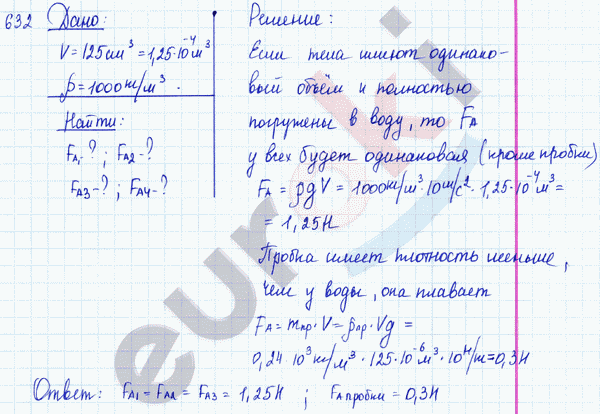 632 Дано:
V = 125 см³ = 1,25·10⁻⁴ м³
ρ = 1000 кг/м³.
Найти:
F_A1-? ; F_A2-?
F_A3-? ; F_A4-?
Решение:
Если тела имеют одинако-
вый объём и полностью
погружены в воду, то F_A
у всех будет одинаковая (кроме пробки)
F_A = ρgV = 1000 кг/м³·10 м/с²·1,25·10⁻⁴ м³ =
= 1,25 Н
Пробка имеет плотность меньше,
чем у воды, она плавает
F_A = m_пр·V = ρ_пр·Vg =
0,24·10³ кг/м³·125·10⁻⁶ м³·10 Н/кг = 0,3 Н
Ответ: F_A1 = F_A2 = F_A3 = 1,25 Н ; F_A пробки = 0,3 Н
euroki